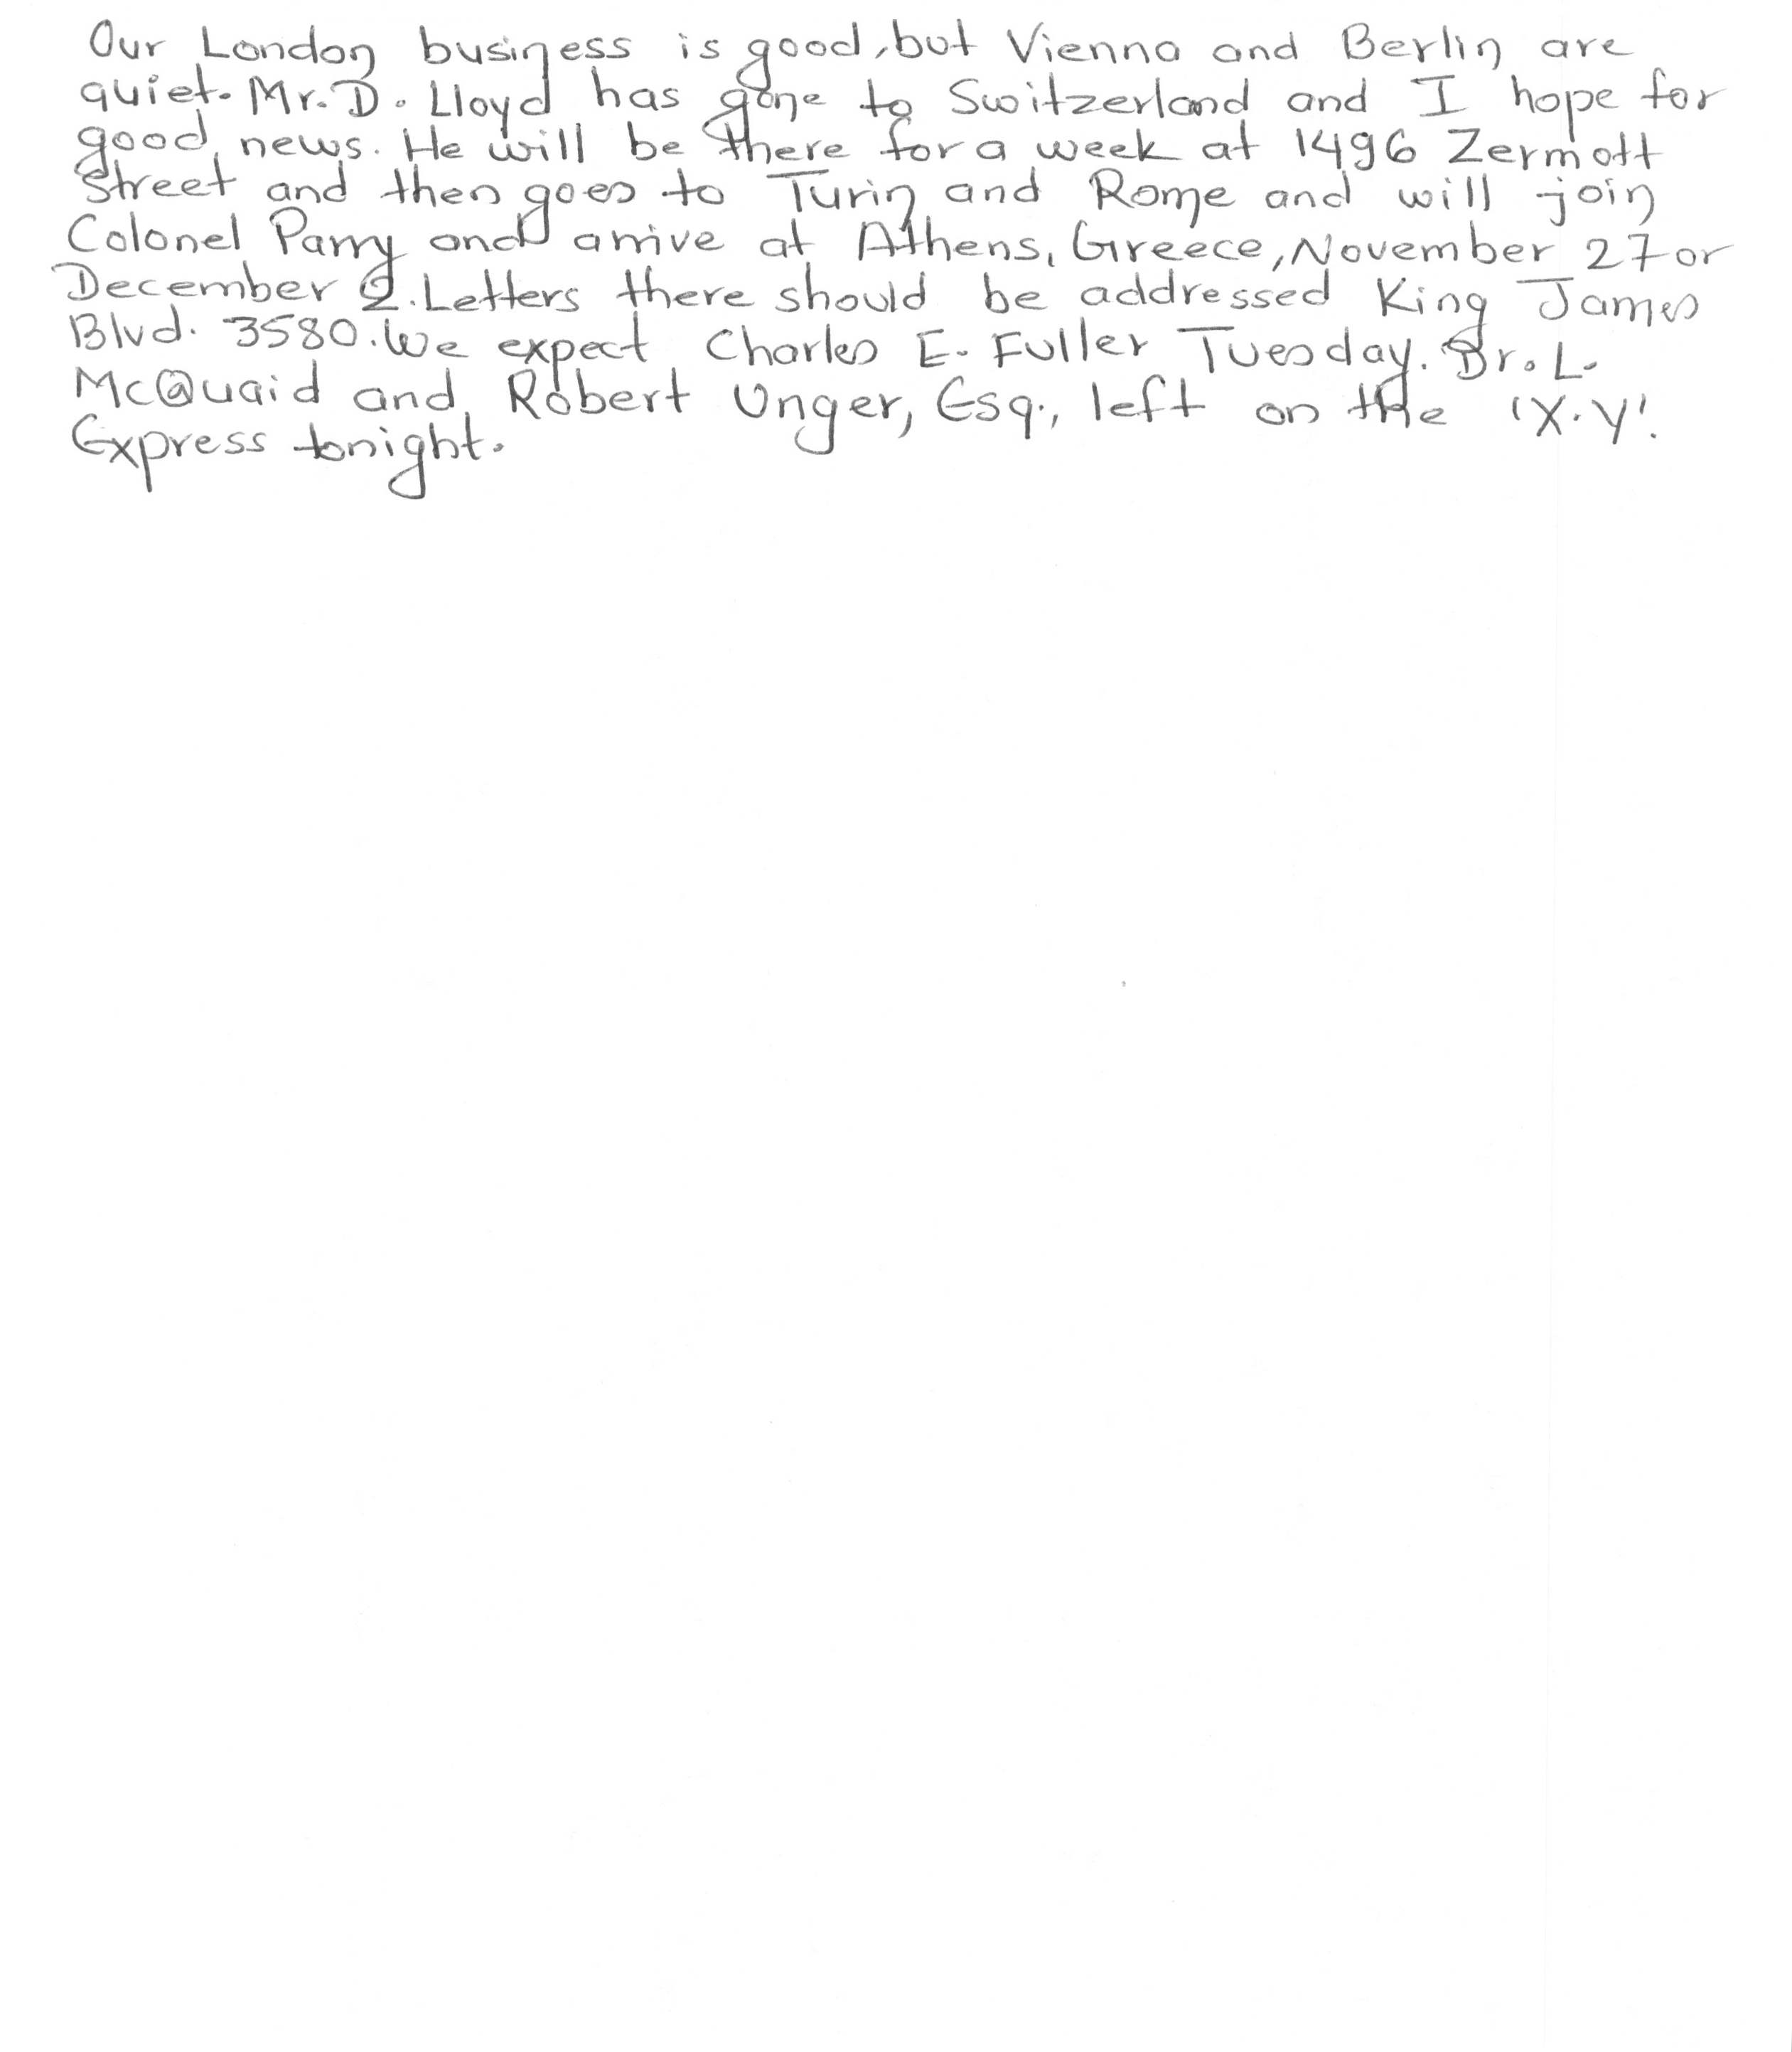 Our London business is good, but Vienna and Berlin are
quiet. Mr. D. Lloyd has gone to Switzerland and I hope for
good news. He will be there for a week at 1496 Zermott
Street and then goes to Turin and Rome and will join
Colonel Parry and arrive at Athens, Greece, November 27 or
December 2. Letters there should be addressed King James
Blvd. 3580. We expect Charles E. Fuller Tuesday. Dr. L.
McQuaid and Robert Unger, Esq., left on the 'X.Y'.
Express tonight.